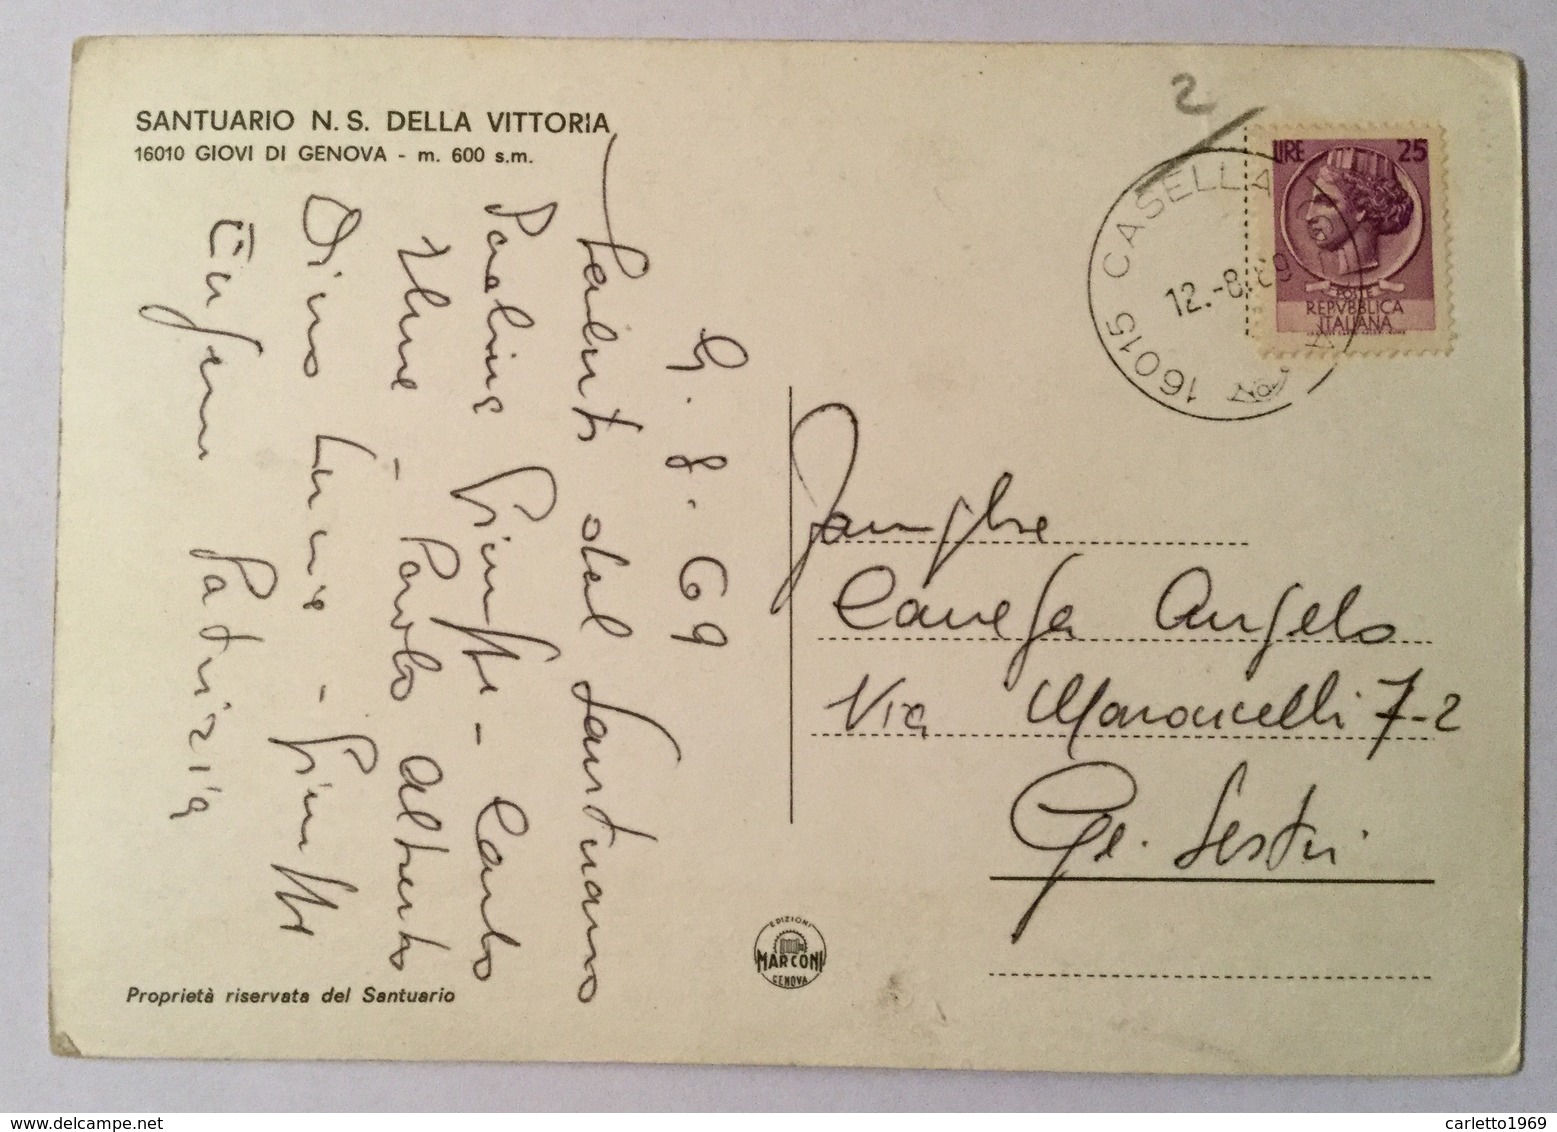 SANTUARIO N. S. DELLA VITTORIA
16010 GIOVI DI GENOVA - m. 600 s.m.
9. 8. 69
Saluti dal Santuario
Paolina - Carlo
- Paolo Alberto
Dino -
Patrizia
2
16015 CASELLA
12.-8.69
LIRE 25
POSTE
REPVBBLICA
ITALIANA
Famiglia
Canefa Angelo
Via Maroncelli 7-2
Ge. Sestri
EDIZIONI
MARCONI
GENOVA
Proprietà riservata del Santuario
carletto1969